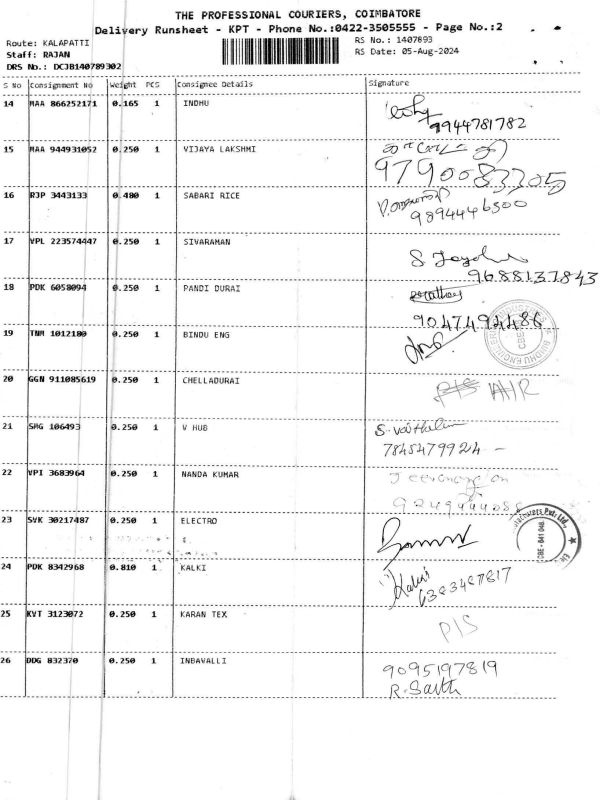 THE PROFESSIONAL COURIERS, COIMBATORE
Delivery Runsheet - KPT - Phone No.:0422-3505555 - Page No.:2
Route: KALAPATTI
RS No.: 1407893
Staff: RAJAN
RS Date: 05-Aug-2024
DRS No.: DCJB140789302
S No Consignment No Weight PCS Consignee Details Signature
14 MAA 866252171 0.165 1 INDHU
9944781782
15 MAA 944931052 0.250 1 VIJAYA LAKSHMI
9790083305
16 RJP 3443133 0.480 1 SABARI RICE
9894446500
17 VPL 223574447 0.250 1 SIVARAMAN
9688137843
18 PDK 6058094 0.250 1 PANDI DURAI
9047494486
19 TNM 1012180 0.250 1 BINDU ENG
20 GGN 911085619 0.250 1 CHELLADURAI
21 SMG 106493 0.250 1 V HUB
7845479924 -
22 VPI 3683964 0.250 1 NANDA KUMAR
23 SVK 30217487 0.250 1 ELECTRO
CBE - 641 048.
24 PDK 8342968 0.810 1 KALKI
Kalki
6383487817
25 KVT 3123072 0.250 1 KARAN TEX
P/S
26 DDG 832370 0.250 1 INBAVALLI
9095197819